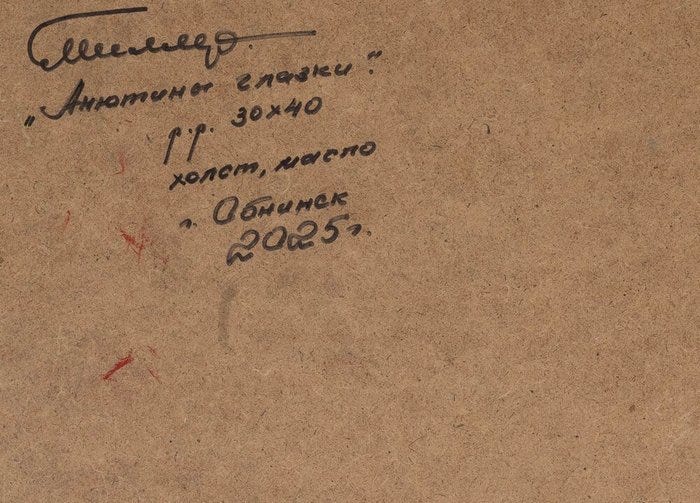 „Анютины глазки".
р.р. 30х40
холст, масло
г. Обнинск
2025г.